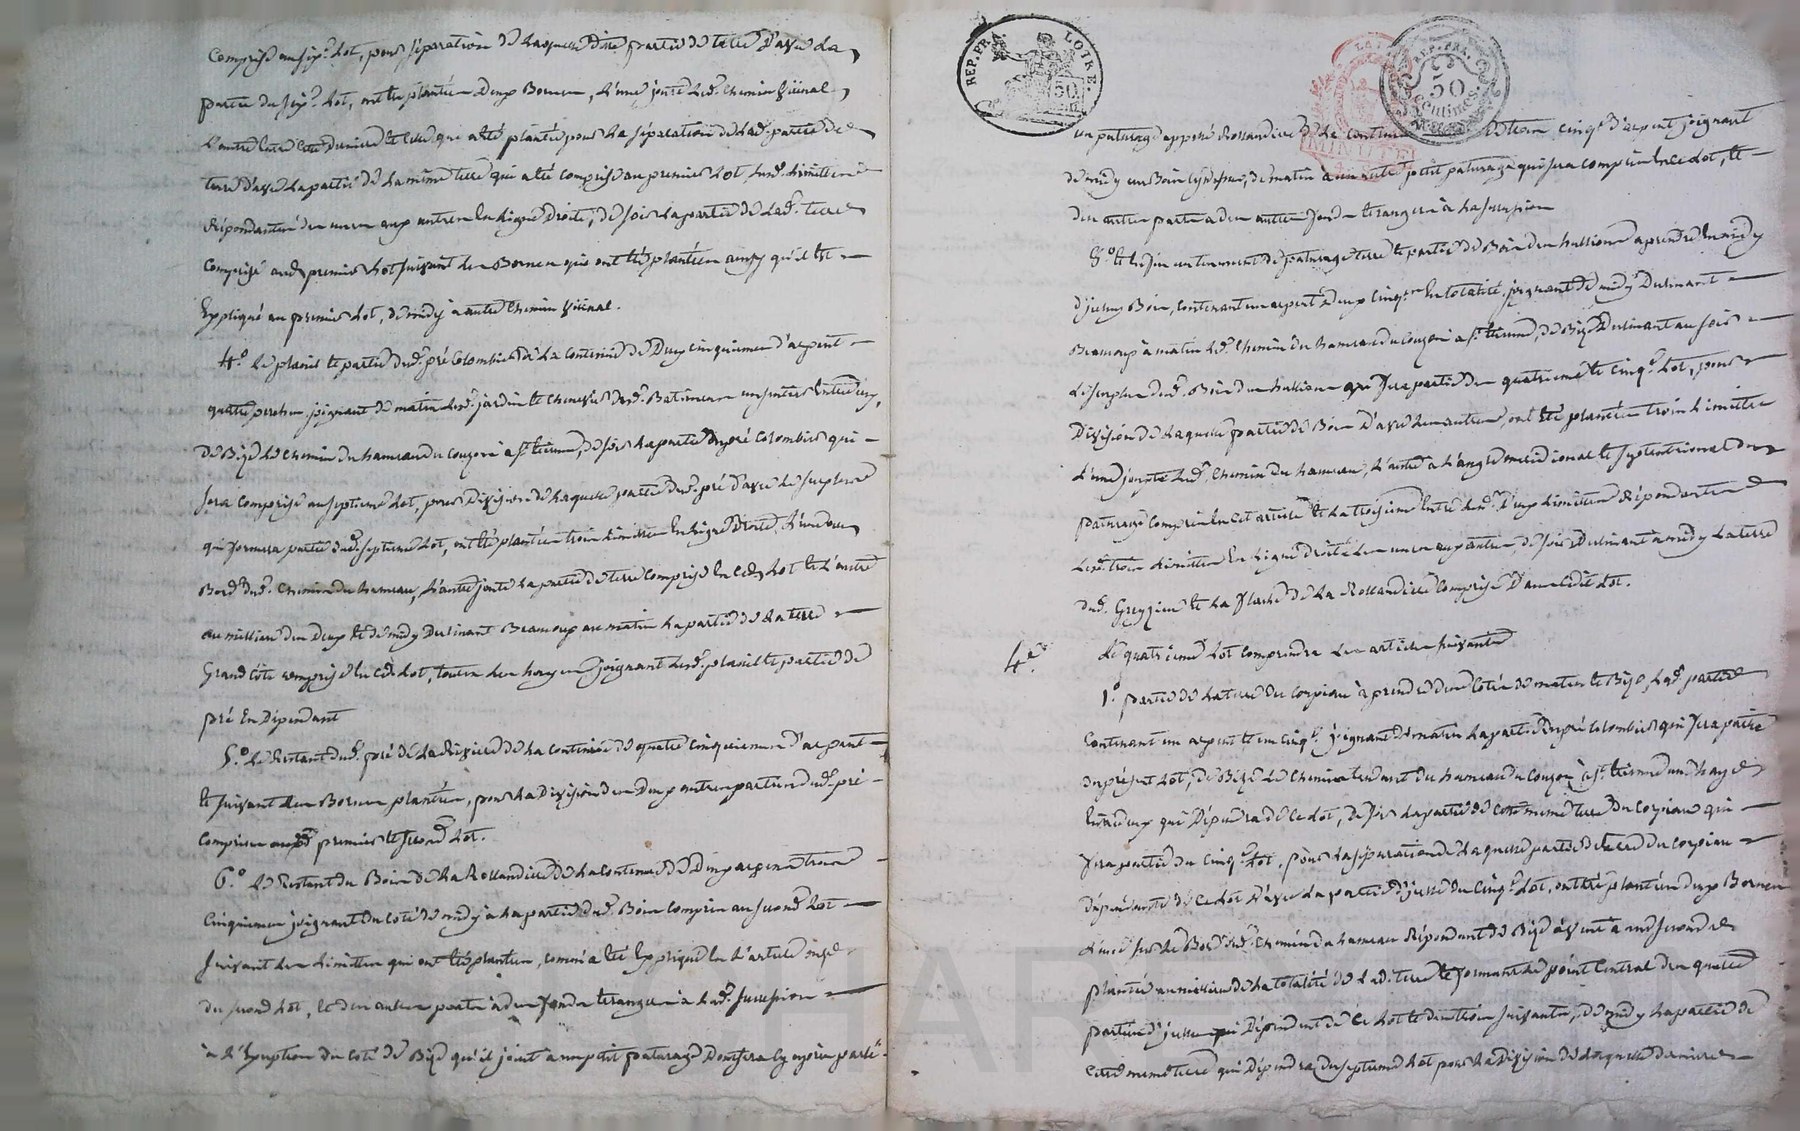 comprise au six.e Lot, pour séparation de laquelle dite partie de terre d'avec la
partie du six.e Lot, ont été plantées deux Bornes, L'une joute led. chemin vicinal,
L'autre entre cette derniere et celle qui a été plantée pour la séparation de lad. partie de
terre d'avec la partie de la même terre qui a été comprise au premier Lot, lesd. limittes
Répondantes des unes aux autres en Ligne droite, de soir la partie de lad. terre
comprise aud. premier Lot suivant les Bornes qui ont été plantées ainsy qu'il est
Expliqué au premier Lot, de midy à autre chemin vicinal.
4.° Le plasil et partie dud. pré Colombier de la contenue de Deux cinquiemes d'arpent
quatre perches, joignant de matin lesd. jardin et chenevier desd. Batimens un sentier entre deux,
de Bize le chemin du hameau du couzon à S.t Etienne, de soir la partie du pré Colombier qui
sera comprise au septieme Lot, pour division de laquelle partie dud. pré d'avec le surplus
qui formera partie dud. septieme Lot, ont été plantées trois limittes en Ligne droite, L'une au
Bord dud. chemin du hameau, L'autre joute la partie de terre comprise en ced. Lot et L'autre
au millieu des deux et de midy declinant Beaucoup au matin la partie de la terre
Grand Côte comprise en ced. Lot, toutes les hayes joignant lesd. plasil et partie de
pré en dépendant
5.° Le Restant dud. pré de la Riviere de la contenue de quatre cinquiemes d'arpent
et suivant les Bornes plantées, pour la division des deux autres parties dud. pré
comprises aud. premier et second Lot.
6.° Le Restant du Bois de la Rollandiere de la contenue de Deux arpens trois
cinquiemes joignant du coté de midy à la partie dud. Bois comprise au second Lot
suivant les limittes qui ont été plantées, comme a été Expliqué en L'article
du second Lot, et des autres parts à des fonds étrangers à lad. succession
à L'Exception du coté de Bize qu'il joint à un petit paturage dont sera cy après parlé.
REP. FRA. LOIRE. 50
REP. FRA. 50 centimes.
MINUTE
un paturage appelé Rollandiere de la contenue cinq.e d'arpent joignant
de midy au Bois cydessus, de matin à un autre petit paturage qui sera compris en ce Lot, et
des autres parts à des autres fonds étrangers à la succession
8.° et en fin un tenement de paturage terre et partie de Bois des hallions à prendre en midy
dysseluy Bois, contenant un arpent deux cinq.es en totalité, joignant de midy declinant
Beaucoup à matin led. chemin du hameau du Couzon à S.t Etienne, de Bize declinant au soir
Le surplus dud. Bois des hallions qui fera partie des quatrieme et cinq.e Lot, pour
division de laquelle partie de Bois d'avec les autres, ont été plantées trois limittes
L'une joute led. chemin du hameau, L'autre à l'angle meridional et septentrional du
paturage compris en cet article et la troisieme entre lesd. deux limittes Répondantes
lesd. trois limittes en Ligne droite les unes aux autres de soir declinant à midy la terre
dud. et la de la Rollandiere comprise dans ledit Lot.
4.e Le quatrieme Lot comprendra les articles suivants
1.° partie de la terre du Corpiau à prendre des cotés de matin et Bize, lad. partie
contenant un arpent et un cinq.e joignant de matin la partie du pré Colombier qui fera partie
du présent Lot, de Bize le chemin tendant du hameau du Couzon à S.t Etienne une haye
entre deux qui dépendra de ce Lot, de soir la partie de cette même terre du Corpiau qui
fera partie du cinq.e Lot, pour la séparation de laquelle partie de terre du Corpiau
dépendante de ce Lot d'avec la partie d'ycelle du cinq.e Lot, ont été plantées deux Bornes
L'une sur le Bord dud. chemin du hameau Répondant de Bize à vent à une seconde
plantée au milieu de la totalité de lad. terre et formant le point central des quatre
parties d'ycelle qui dépendent de ce Lot et des trois suivants, de midy la partie de
cette même terre qui dépendra du septieme Lot pour la division de laquelle derniere